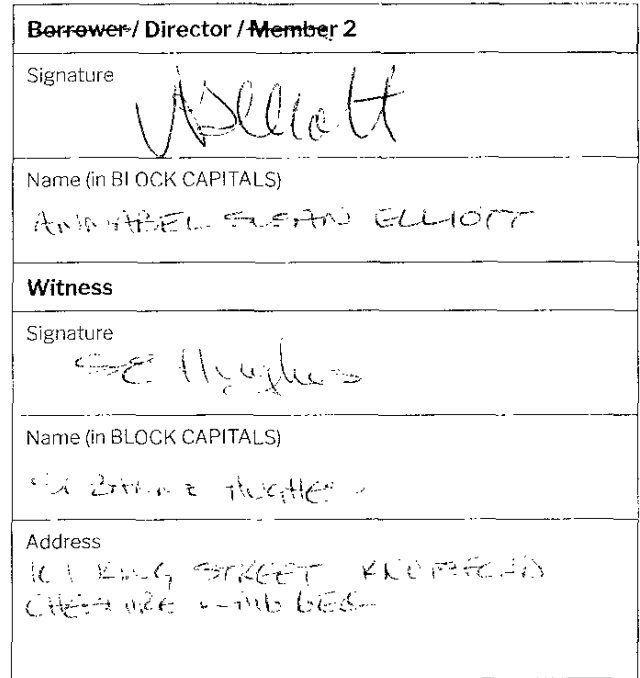 Borrower / Director / Member 2
Signature
Name (in BLOCK CAPITALS)
ANNABEL SUSAN ELLIOTT
Witness
Signature
SE Hughes
Name (in BLOCK CAPITALS)
HUGHES
Address
KING STREET KNUTSFORD
CHESHIRE